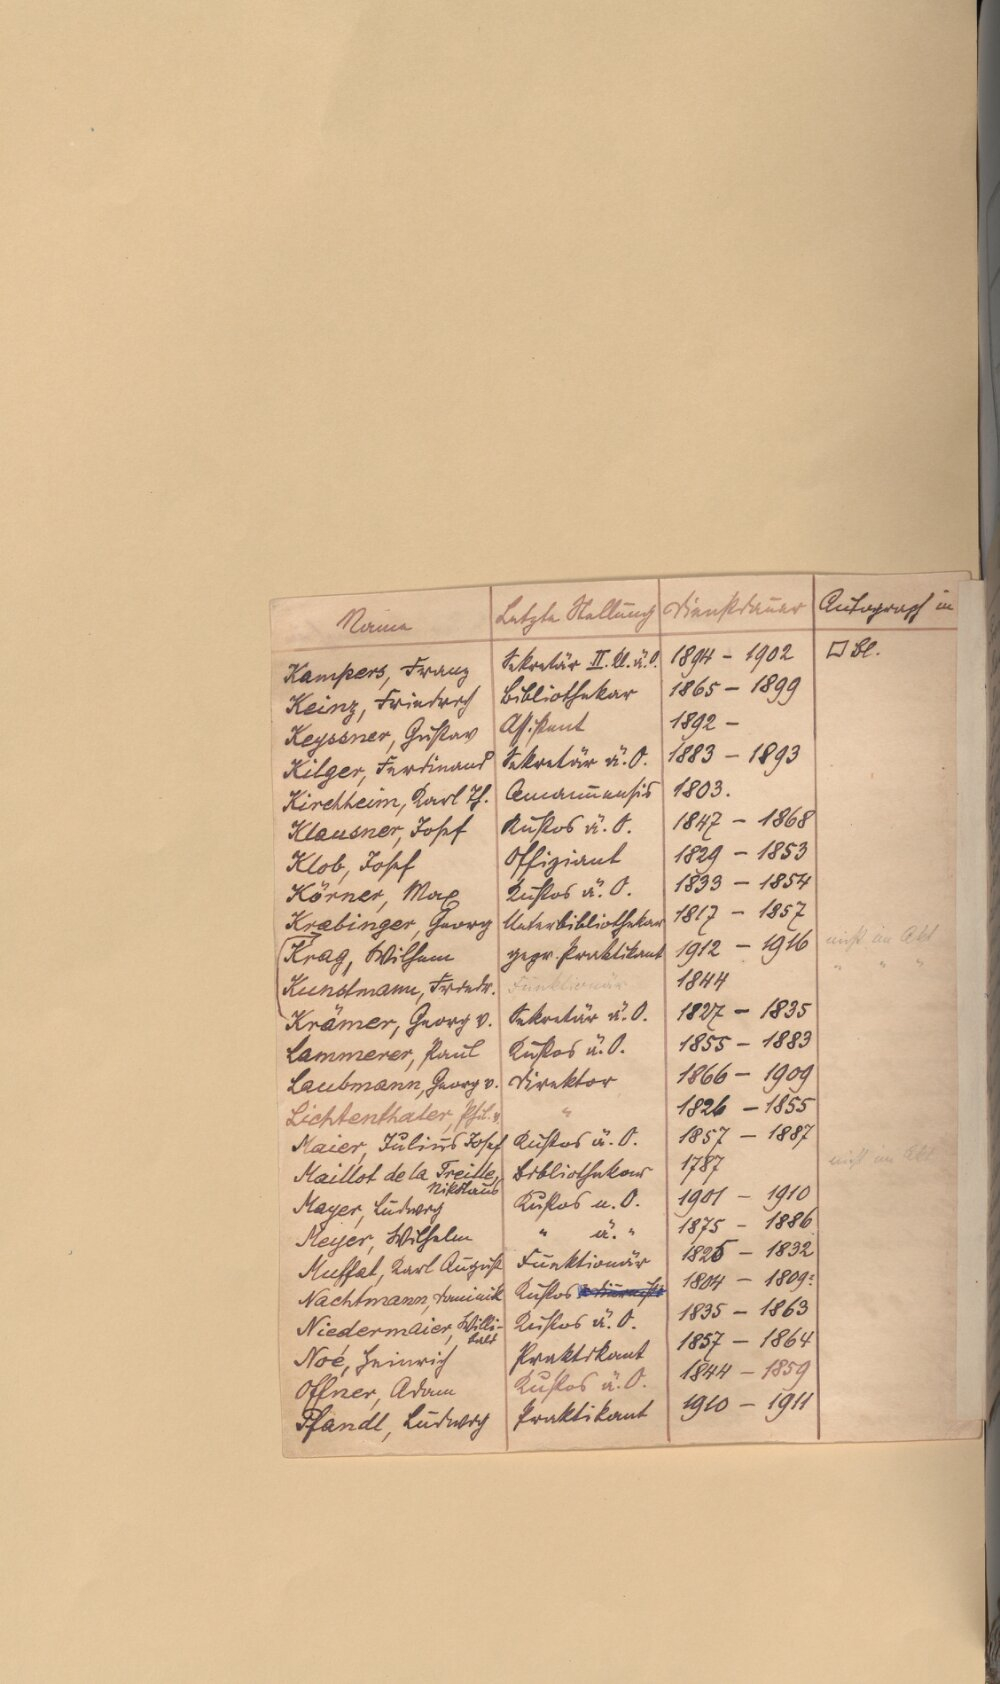 Name Letzte Stellung Dienstdauer Autograph in
Kampers, Franz Sekretär II. Kl. ä. O. 1894 - 1902 □ Bl.
Keinz, Friedrich Bibliothekar 1865 - 1899
Keyssner, Gustav Assistent 1892 -
Kilger, Ferdinand Sekretär ä. O. 1883 - 1893
Kirchheim, Karl Th. Amanuensis 1803.
Klausner, Josef Kustos ä. O. 1847 - 1868
Klob, Josef Offiziant 1829 - 1853
Körner, Max Kustos ä. O. 1833 - 1854
Krabinger, Georg Unterbibliothekar 1817 - 1857
Krag, Wilhelm gepr. Praktikant 1912 - 1916 nicht im Akt
Kunstmann, Friedr. Funktionär 1844 " " "
Krämer, Georg v. Sekretär ä. O. 1827 - 1835
Lammerer, Paul Kustos ä. O. 1855 - 1883
Laubmann, Georg v. Direktor 1866 - 1909
Lichtenthaler, Phil. v. " 1826 - 1855
Maier, Julius Josef Kustos ä. O. 1857 - 1887
Maillot de la Treille, Bibliothekar 1787 nicht im Akt
Nikolaus
Mayer, Ludwig Kustos n. O. 1901 - 1910
Meyer, Wilhelm " ä. " 1875 - 1886
Muffat, Karl August Funktionär 1825 - 1832
Nachtmann, Dominik Kustos 1804 - 1809:
Niedermaier, Willi- Kustos ä. O. 1835 - 1863
bald
Noé, Heinrich Praktikant 1857 - 1864
Offner, Adam Kustos ä. O. 1844 - 1859
Pfandl, Ludwig Praktikant 1910 - 1911